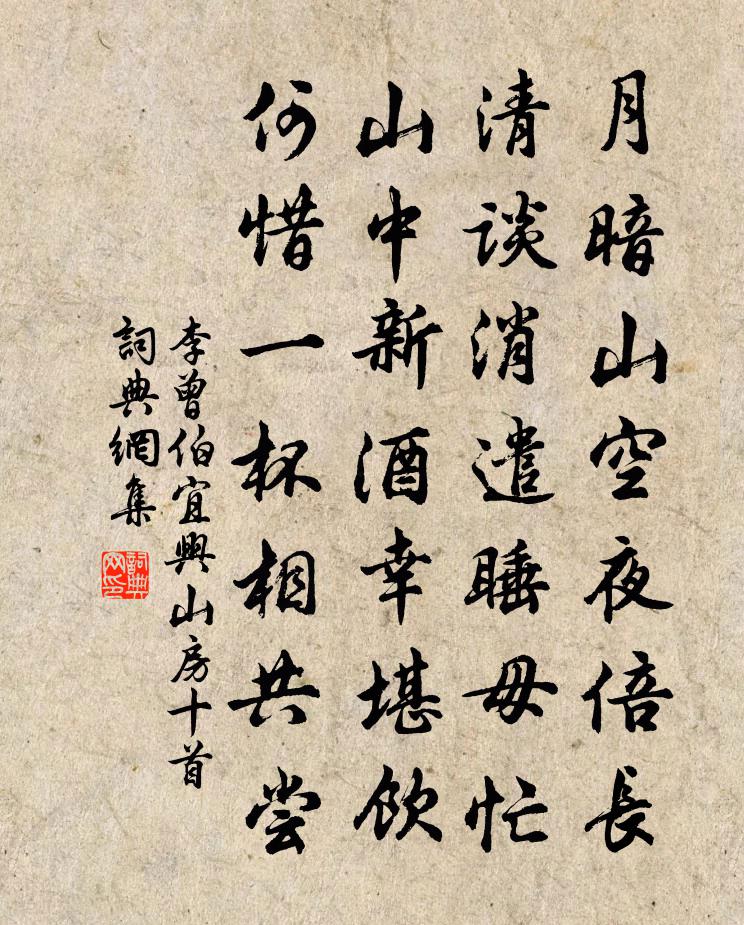 月暗山空夜倍長
清談消遣睡毋忙
山中新酒幸堪飲
何惜一杯相共嘗
李曾伯宜興山房十首
詞典網集
詞典网印